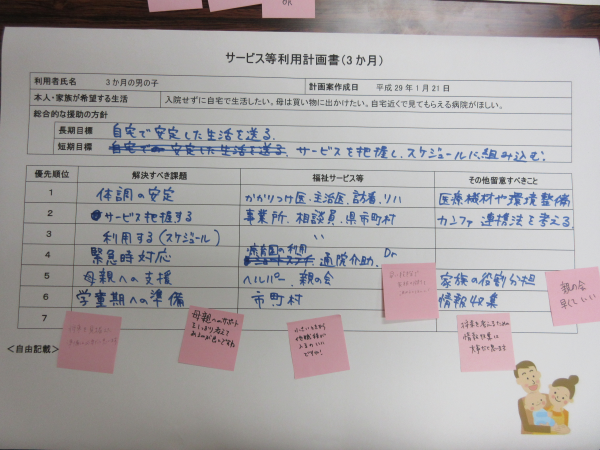 OK
サービス等利用計画書(3か月)
利用者氏名 3か月の男の子 計画案作成日 平成29年1月21日
本人・家族が希望する生活 入院せずに自宅で生活したい。母は買い物に出かけたい。自宅近くで見てもらえる病院がほしい。
総合的な援助の方針
長期目標 自宅で安定した生活を送る。
短期目標 自宅で安定した生活を送る。サービスを把握し、スケジュールに組み込む。
優先順位 解決すべき課題 福祉サービス等 その他留意すべきこと
1 体調の安定 かかりつけ医、主治医、訪看、リハ 医療機材や環境整備
2 サービス把握する 事業所、相談員、県市町村 カンファ 連携法を考える
3 利用する(スケジュール) 〃
4 緊急時対応 の利用 通院介助、Dr
5 母親への支援 ヘルパー、親の会 家族の役割分担
6 学童期への準備 市町村 情報収集
7
親の会
早くていい
母親へのサポート
しっかり考えて
あるのが良いですね
将来を考えるため
情報収集は
大事だと思います
<自由記載>